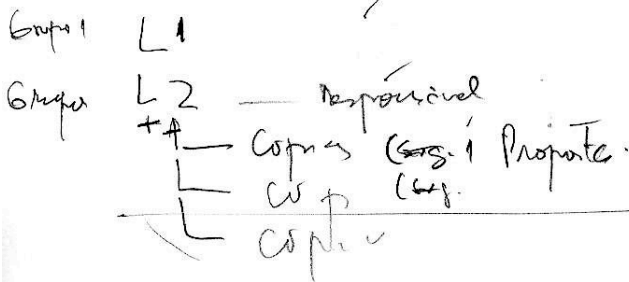 Grupo 1 L1
Grupo L2 — Responsável
Copias 1 Proposta.
Cop
Copia